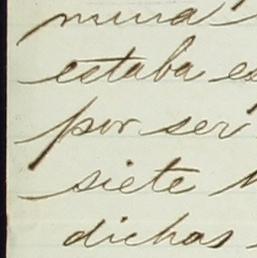 estaba es
por ser
siete
dichas